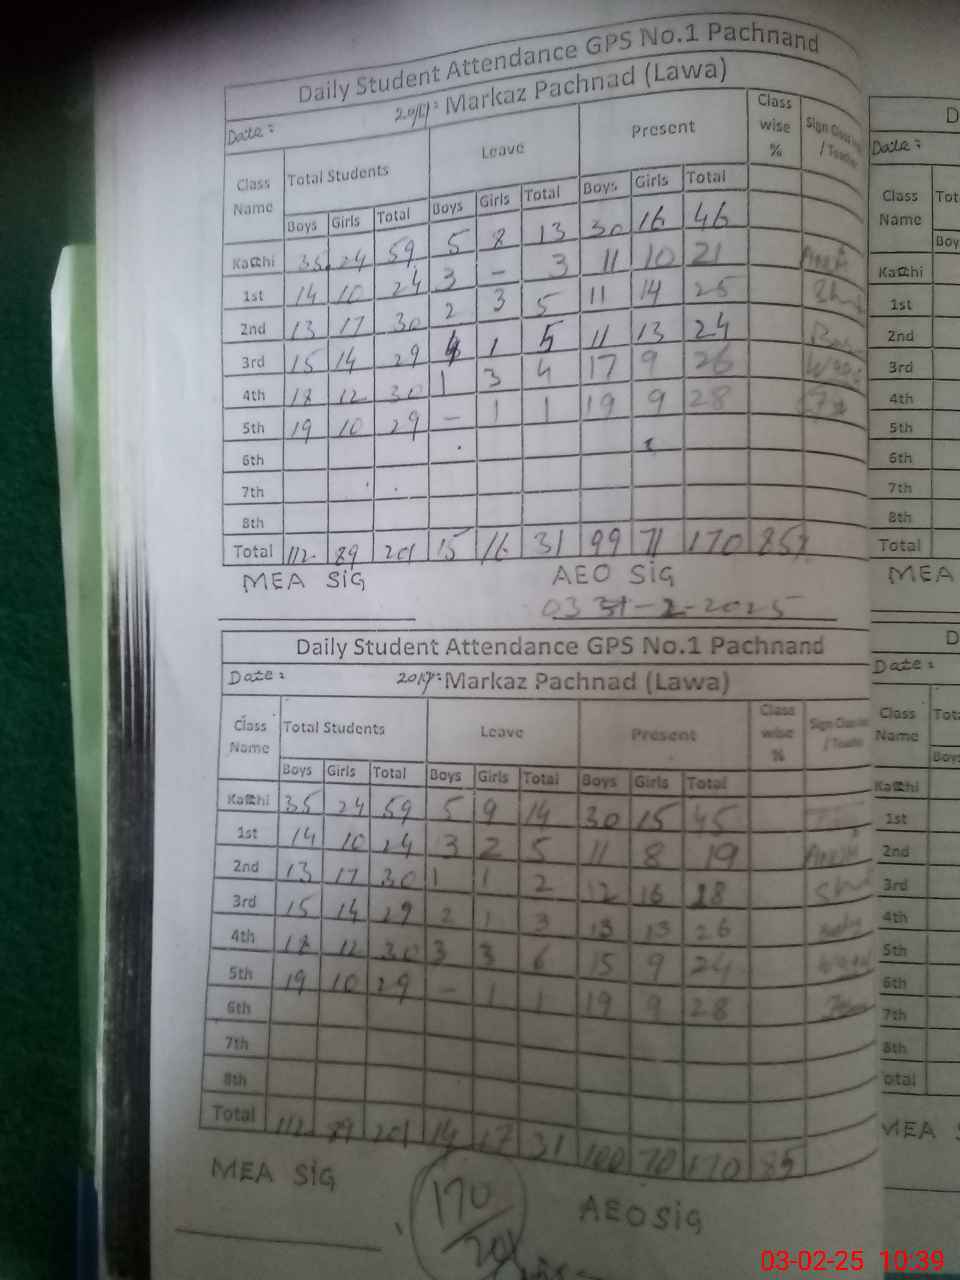 Daily Student Attendance GPS No.1 Pachnand
Date: Markaz Pachnad (Lawa)
Class Name Total Students Leave Present Class wise %
Boys Girls Total Boys Girls Total Boys Girls Total
Kachi 35 24 59 5 8 13 30 16 46
1st 14 10 24 3 - 3 11 10 21
2nd 13 17 30 2 3 5 11 14 25
3rd 15 14 29 4 1 5 11 13 24
4th 18 12 30 1 3 4 17 9 26
5th 19 10 29 - 1 1 19 9 28
6th
7th
8th
Total 112 89 201 15 16 31 99 71 170 85%
MEA SiG AEO SiG
03 31-2-2025
Daily Student Attendance GPS No.1 Pachnand
Date: Markaz Pachnad (Lawa)
Class Name Total Students Leave Present Class wise %
Boys Girls Total Boys Girls Total Boys Girls Total
Kachi 35 24 59 5 9 14 30 15 45
1st 14 10 24 3 2 5 11 8 19
2nd 13 17 30 1 1 2 12 16 28
3rd 15 14 29 2 1 3 13 13 26
4th 18 12 30 3 3 6 15 9 24
5th 19 10 29 - 1 1 19 9 28
6th
7th
8th
Total 112 89 201 14 17 31 100 70 170 85
MEA SiG AEO SiG
170
201
D
Date:
Class Name Tot
Boy
Kachi
1st
2nd
3rd
4th
5th
6th
7th
8th
Total
MEA
D
Date:
Class Name Tota
Boys
Kachi
1st
2nd
3rd
4th
5th
6th
7th
8th
otal
MEA
03-02-25 10:39